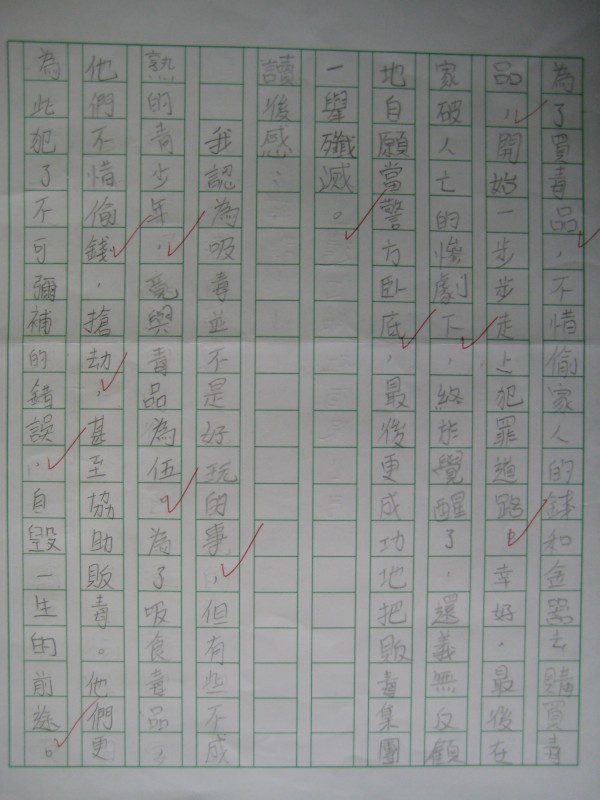 為了買毒品，不惜偷家人的錢和金器去購買毒
品，開始一步步走上犯罪道路。幸好，最後在
家破人亡的慘劇下，終於覺醒了，還義無反顧
地自願當警方卧底，最後更成功地把販毒集團
一舉殲滅。
讀後感：
我認為吸毒並不是好玩的事，但有些不成
熟的青少年，竟與毒品為伍。為了吸食毒品，
他們不惜偷錢，搶劫，甚至協助販毒。他們更
為此犯了不可彌補的錯誤，自毀一生的前途。